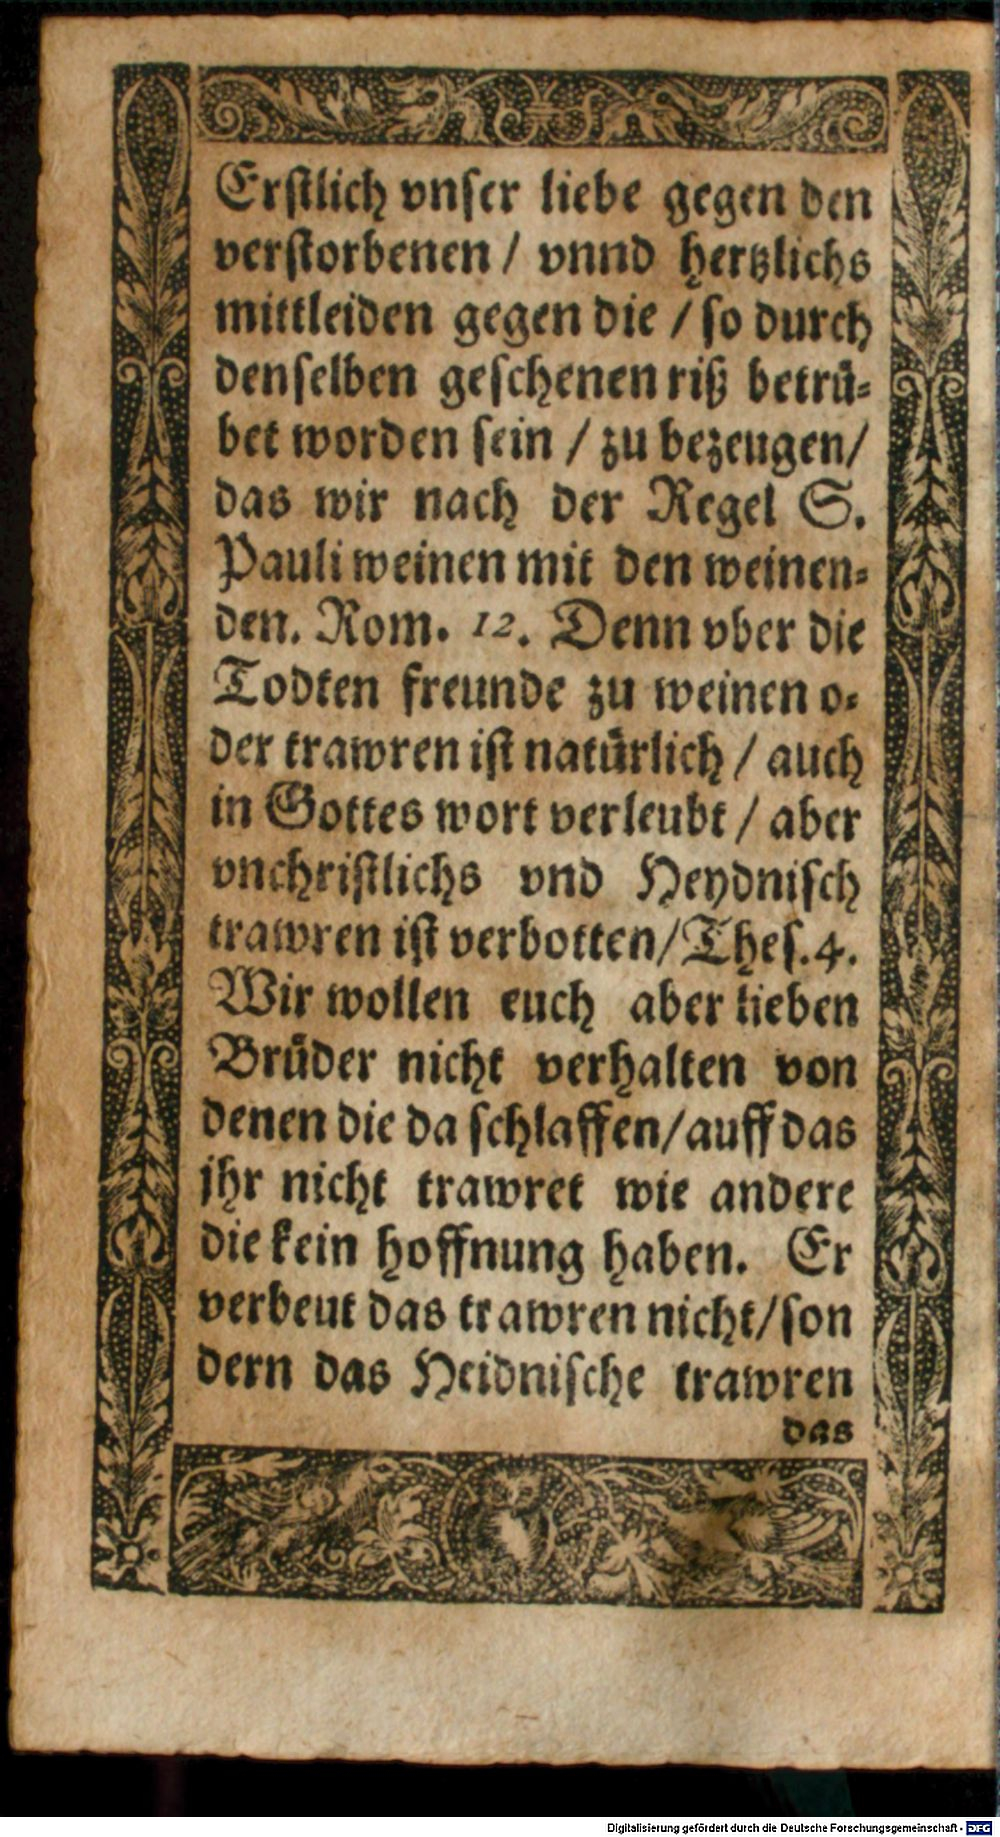 Erſtlich vnſer liebe gegen den
verſtorbenen / vnnd hertzlichs
mittleiden gegen die / ſo durch
denſelben geſchenen riß betrü⸗
bet worden ſein / zu bezeugen/
das wir nach der Regel S.
Pauli weinen mit den weinen⸗
den. Rom. 12. Denn vber die
Todten freunde zu weinen o⸗
der trawren iſt natürlich / auch
in Gottes wort verleubt / aber
vnchriſtlichs vnd Heydniſch
trawren iſt verbotten/Theſ.4.
Wir wollen euch aber lieben
Brüder nicht verhalten von
denen die da ſchlaffen/auff das
jhr nicht trawret wie andere
die kein hoffnung haben. Er
verbeut das trawren nicht/ſon
dern das Heidniſche trawren
das
Digitalisierung gefördert durch die Deutsche Forschungsgemeinschaft - DFG